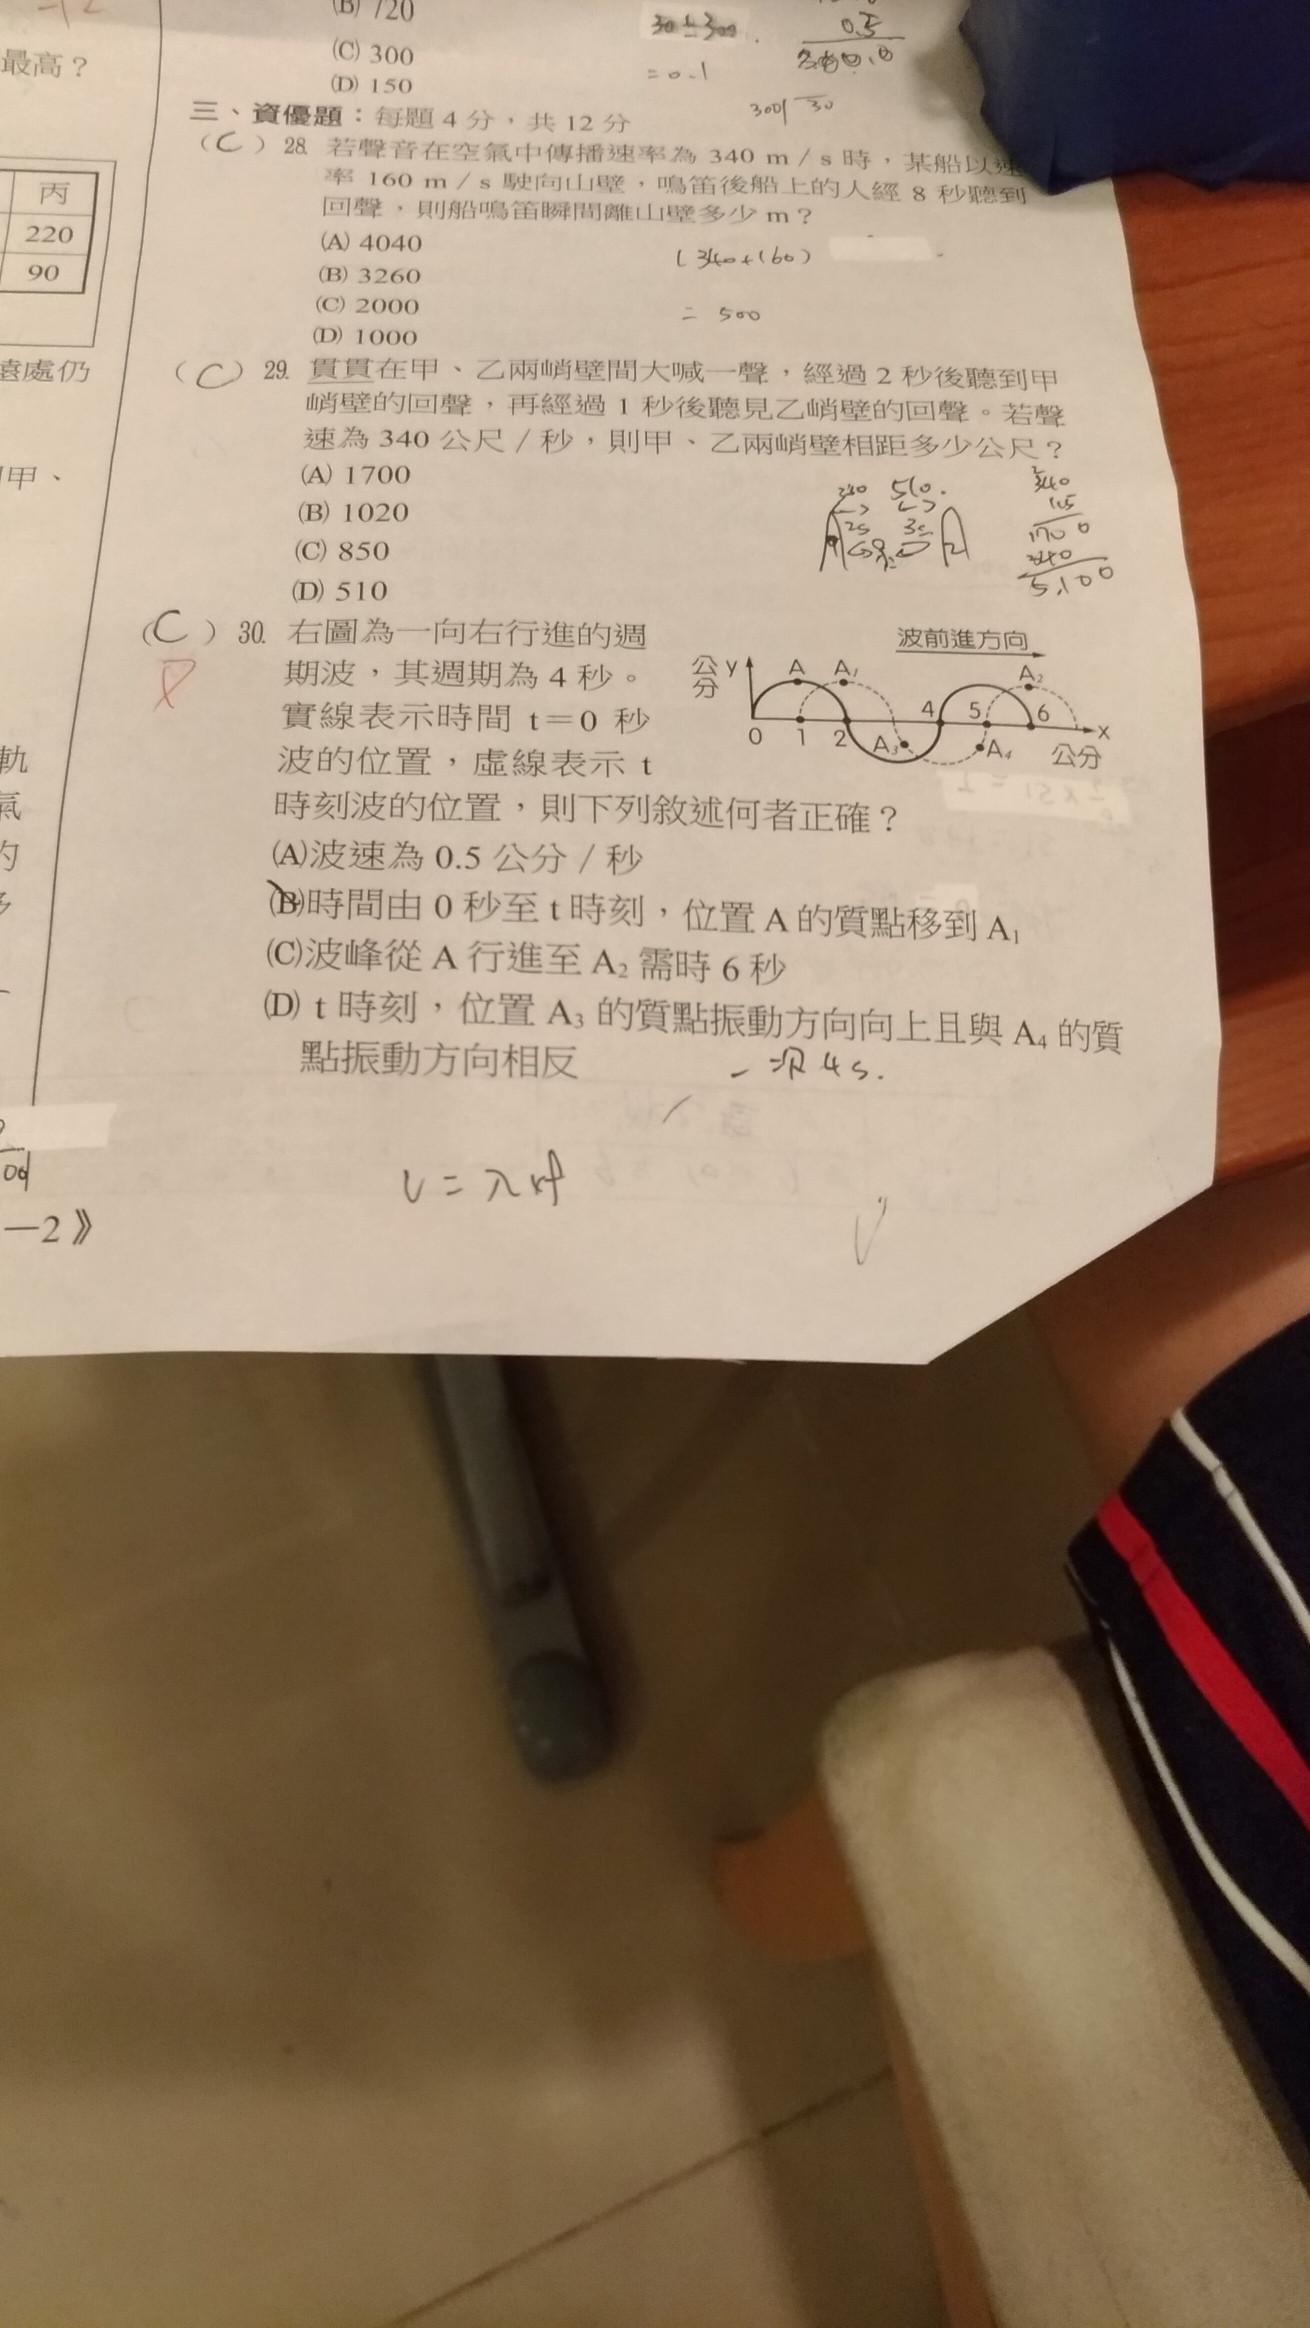 最高？
丙
220
90
遠處仍
甲、
軌
氣
—2》
(B) 720
(C) 300
(D) 150
30÷300
=0.1
0.5
三、資優題：每題 4 分，共 12 分
(C) 28. 若聲音在空氣中傳播速率為 340 m／s 時，某船以速
率 160 m／s 駛向山壁，鳴笛後船上的人經 8 秒聽到
回聲，則船鳴笛瞬間離山壁多少 m？
(A) 4040
(B) 3260
(C) 2000
(D) 1000
(340+160)
= 500
(C) 29. 貫貫在甲、乙兩峭壁間大喊一聲，經過 2 秒後聽到甲
峭壁的回聲，再經過 1 秒後聽見乙峭壁的回聲。若聲
速為 340 公尺／秒，則甲、乙兩峭壁相距多少公尺？
(A) 1700
(B) 1020
(C) 850
(D) 510
340 510
2s 3s
340
1.5
1700
340
5,100
(C) 30. 右圖為一向右行進的週
期波，其週期為 4 秒。
實線表示時間 t＝0 秒
波的位置，虛線表示 t
時刻波的位置，則下列敘述何者正確？
波前進方向
公分 y A A₁ A₂
0 1 2 A₃ 4 5 A₄ 6 x
公分
(A)波速為 0.5 公分／秒
(B)時間由 0 秒至 t 時刻，位置 A 的質點移到 A₁
(C)波峰從 A 行進至 A₂ 需時 6 秒
(D) t 時刻，位置 A₃ 的質點振動方向向上且與 A₄ 的質
點振動方向相反
一次 4s.
v = λ×f